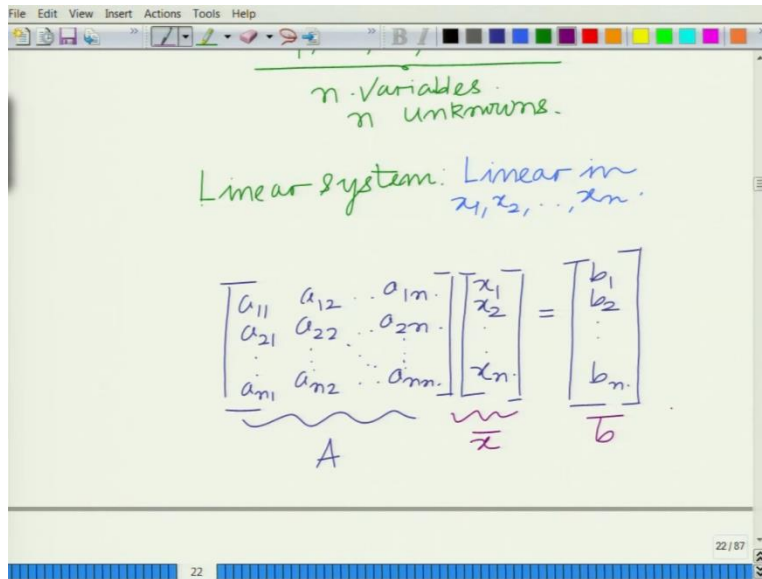 File Edit View Insert Actions Tools Help
B I
n variables.
n unknowns.
Linear system: Linear in
x1, x2, .., xn.
a11 a12 .. a1n. x1 = b1
a21 a22 .. a2n. x2 b2
: : ⋱ : : :
an1 an2 .. ann. xn. bn.
A x̄ b̄
22/87
22